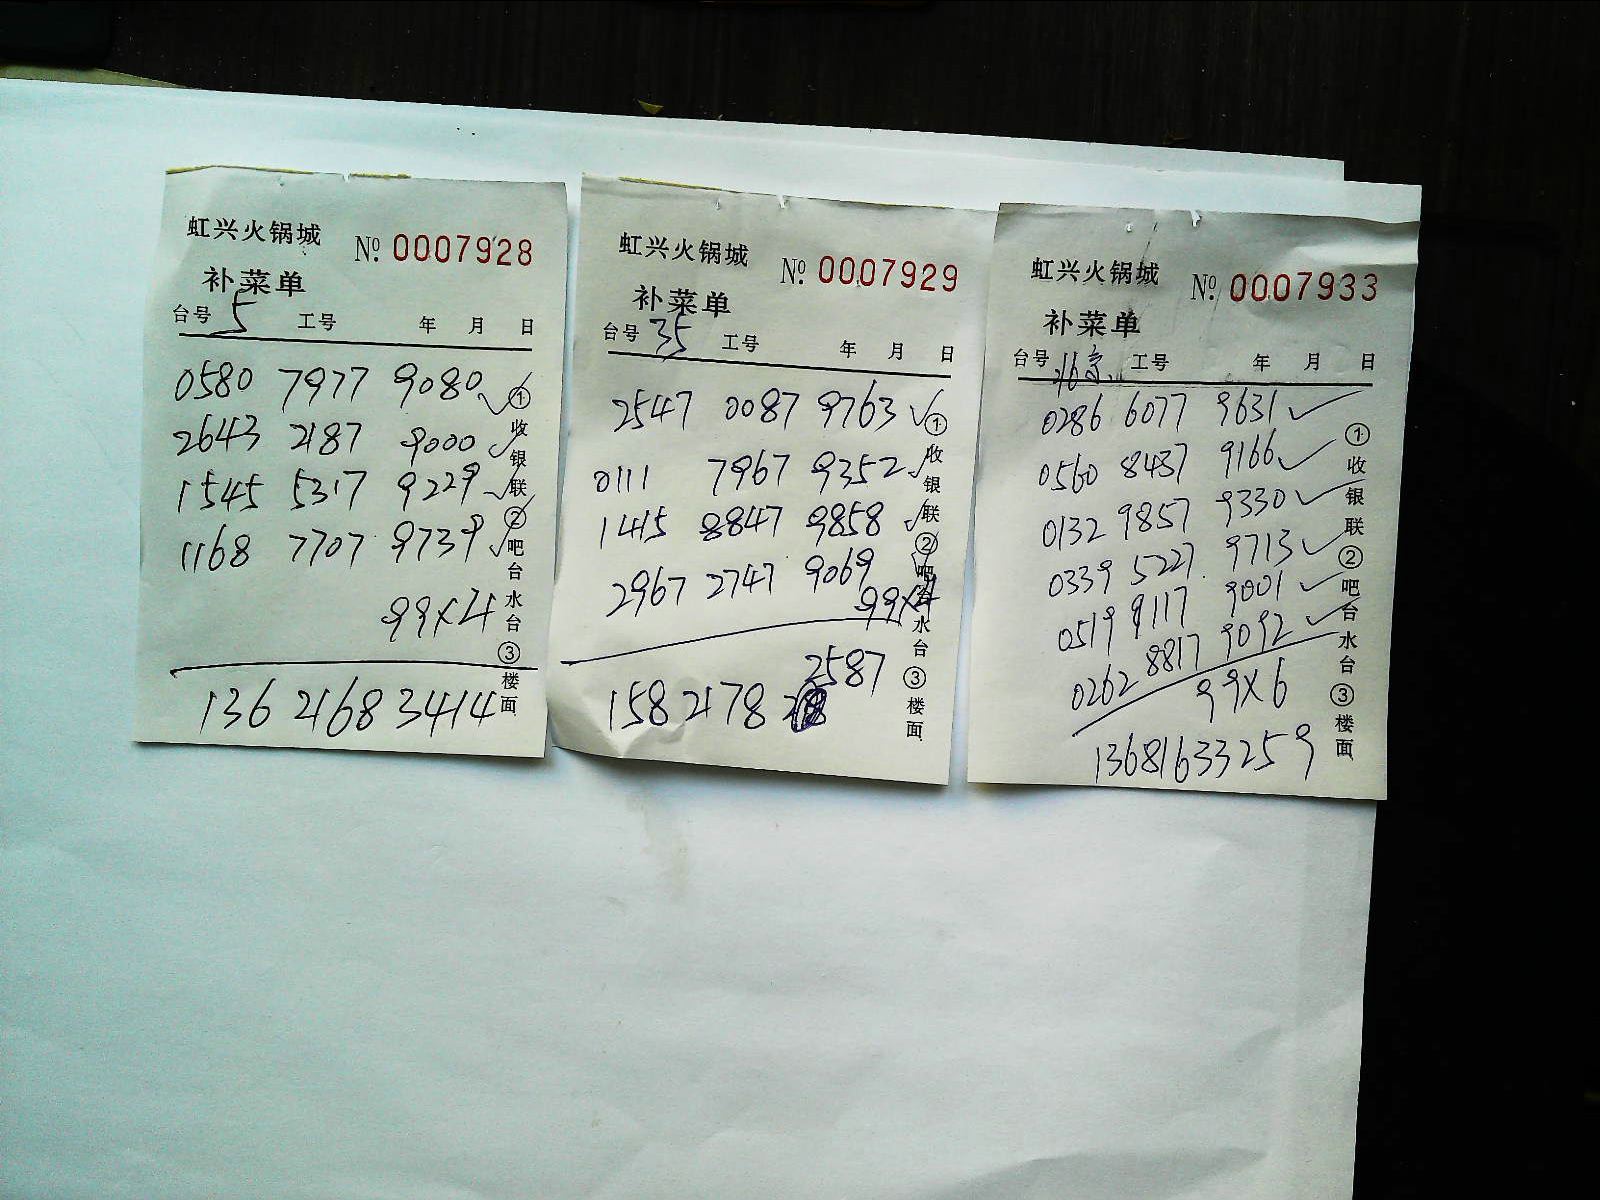 虹兴火锅城 № 0007928
补菜单
台号 5 工号 年 月 日
0580 7977 9080
2643 2187 9000
1545 5317 9229
1168 7707 9739
99×4
136 2168 3414
①收银联②吧台水台③楼面
虹兴火锅城 № 0007929
补菜单
台号 35 工号 年 月 日
2547 0087 9763
0111 7967 9352
1415 8847 9858
2967 2747 9069
99×4
2587
158 2178
①收银联②吧台水台③楼面
虹兴火锅城 № 0007933
补菜单
台号 工号 年 月 日
0286 6077 9631
0560 8437 9166
0132 9857 9330
0339 5227 9713
0519 9117 9001
0262 8817 9092
99×6
13681633259
①收银联②吧台水台③楼面